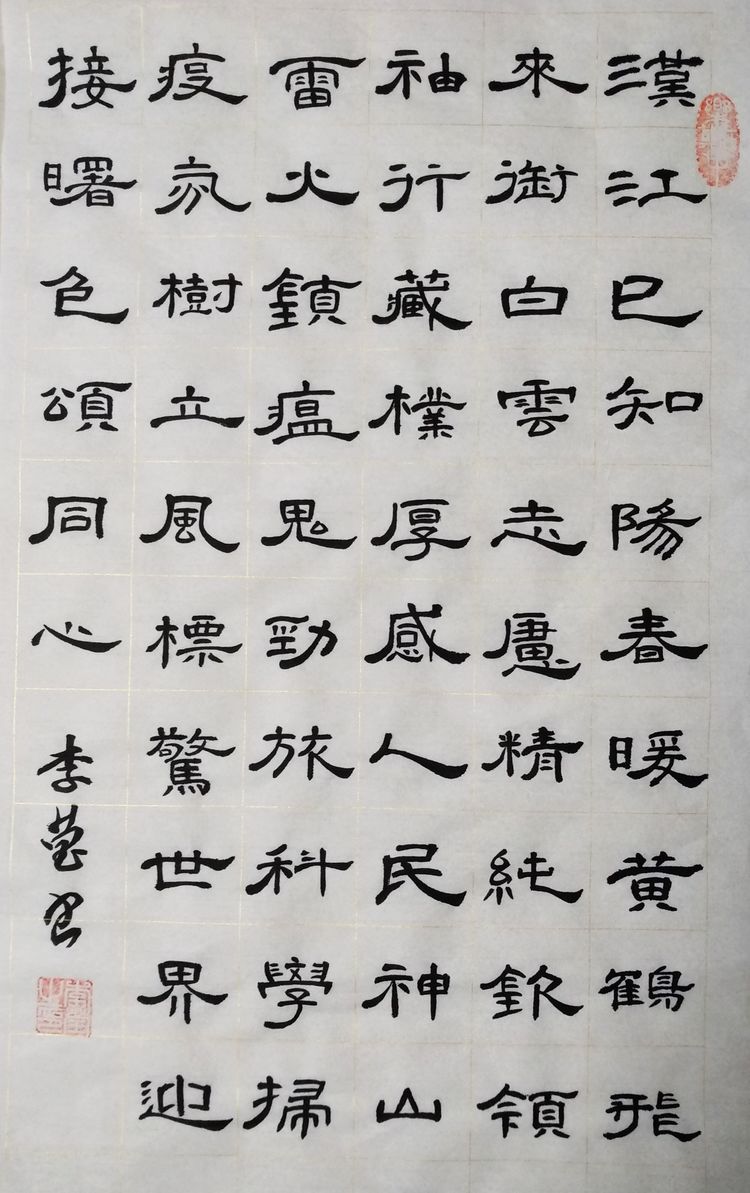 漢江已知陽春暖黄鶴飛
來銜白雲志慮精純欽領
袖行藏樸厚感人民神山
雷火鎮瘟鬼勁旅科學掃
疫氛樹立風標驚世界迎
接曙色頌同心
李瑩書